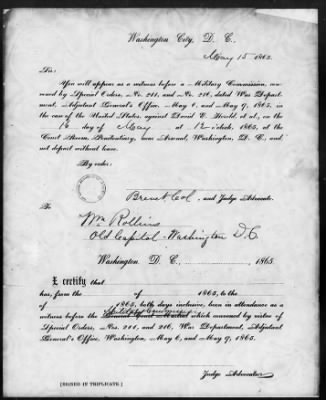 Washington City, D. C.,
May 15 1865.
Sir:
You will appear as a witness before a Military Commission, convened by Special Orders, No. 211, and No. 216, dated War Department, Adjutant General's Office, May 6, and May 9, 1865, in
the case of the United States, against David E. Herold, et al., on the
16 day of May at 12 o'clock, 1865, at the
Court Room, Penitentiary, near Arsenal, Washington, D. C., and
not depart without leave.
By order:
Brevet Col, and Judge Advocate.
To
Wm Rollins
Old Capitol - Washington D.C.
Washington, D. C., 1865.
I certify that
has, from the of 1865, to the
of 1865, both days inclusive, been in attendance as a
Military Commission
witness before the General Court-Martial which convened by virtue of
Special Orders, Nos. 211, and 216, War Department, Adjutant
General's Office, Washington, May 6, and May 9, 1865.
Judge Advocate.
[SIGNED IN TRIPLICATE.]